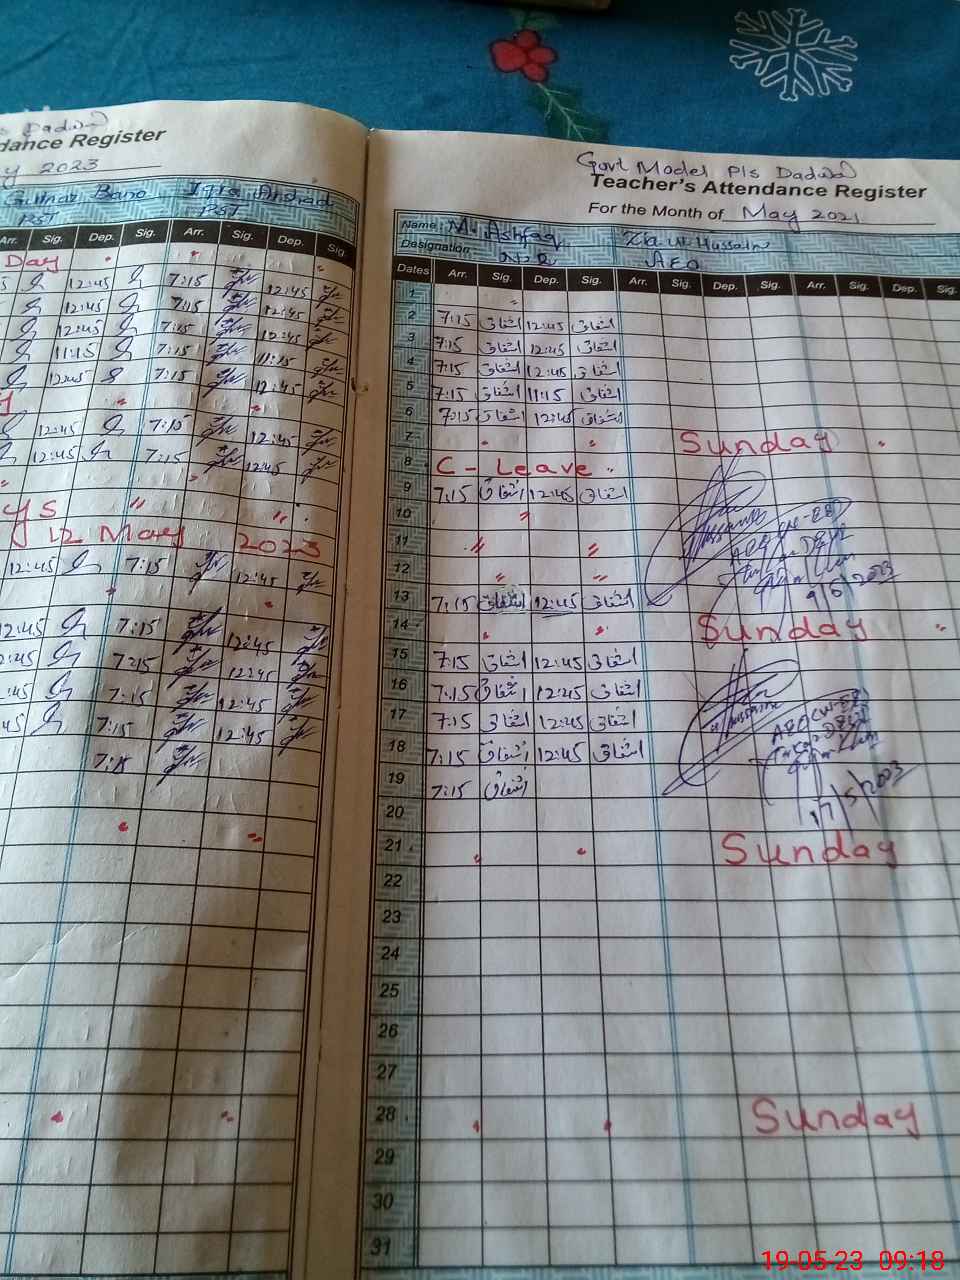 dance Register
y 2023
Gulnaz Bano Iqra Arshad
PST PST
Arr. Sig. Dep. Sig. Arr. Sig. Dep. Sig.
Day
12:45 7:15 12:45
12:45 7:15 12:45
12:45 7:15 12:45
11:15 7:15 11:15
12:45 7:15 12:45
12:45 7:15 12:45
12:45 7:15 12:45
ys
12 May 2023
12:45 7:15 12:45
12:45 7:15 12:45
2:45 7:15 12:45
:45 7:15 12:45
45 7:15 12:45
7:15
Govt Model P/s Dadwal
Teacher's Attendance Register
For the Month of May 2021
Name: M. Ashfaq Zia ul Hussain
Designation AEO
Dates Arr. Sig. Dep. Sig. Arr. Sig. Dep. Sig. Arr. Sig. Dep. Sig.
1
2 7:15 اشفاق 12:45 اشفاق
3 7:15 اشفاق 12:45 اشفاق
4 7:15 اشفاق 12:45 اشفاق
5 7:15 اشفاق 11:15 اشفاق
6 7:15 اشفاق 12:45 اشفاق
7 Sunday
8 C - Leave
9 7:15 اشفاق 12:45 اشفاق
10
11
12
13 7:15 اشفاق 12:45 اشفاق
9/5/2023
14 Sunday
15 7:15 اشفاق 12:45 اشفاق
16 7:15 اشفاق 12:45 اشفاق
17 7:15 اشفاق 12:45 اشفاق
18 7:15 اشفاق 12:45 اشفاق
19 7:15 اشفاق
17/5/2023
20
21 Sunday
22
23
24
25
26
27
28 Sunday
29
30
31
19-05-23 09:18